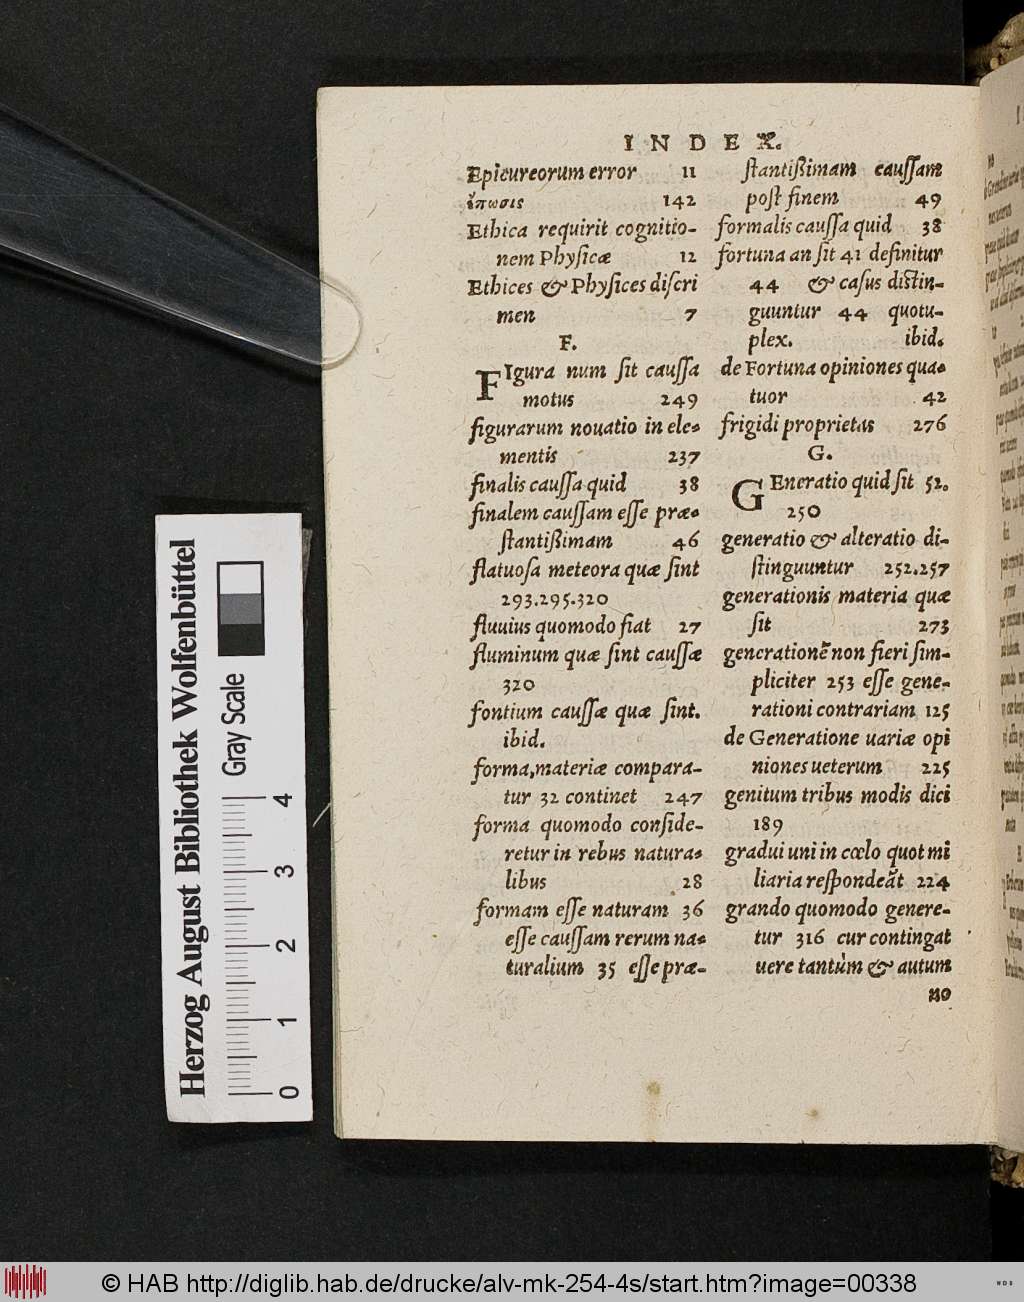 INDEX.
Epicureorum error 11
ἵπωσις 142
Ethica requirit cognitio-
nem Physicæ 12
Ethices & Physices discri
men 7
F.
FIgura num sit caussa
motus 249
figurarum nouatio in ele-
mentis 237
finalis caussa quid 38
finalem caussam esse præ-
stantißimam 46
flatuosa meteora quæ sint
293.295.320
fluuius quomodo fiat 27
fluminum quæ sint caussæ
320
fontium caussæ quæ sint.
ibid.
forma, materiæ compara-
tur 32 continet 247
forma quomodo conside-
retur in rebus natura-
libus 28
formam esse naturam 36
esse caussam rerum na-
turalium 35 esse præ-
stantißimam caussam
post finem 49
formalis caussa quid 38
fortuna an sit 41 definitur
44 & casus distin-
guuntur 44 quotu-
plex. ibid.
de Fortuna opiniones qua-
tuor 42
frigidi proprietas 276
G.
GEneratio quid sit 52.
250
generatio & alteratio di-
stinguuntur 252.257
generationis materia quæ
sit 273
generationē non fieri sim-
pliciter 253 esse gene-
rationi contrariam 125
de Generatione uariæ opi
niones ueterum 225
genitum tribus modis dici
189
gradui uni in cœlo quot mi
liaria respondeāt 224
grando quomodo genere-
tur 316 cur contingat
uere tantùm & autum
no
Herzog August Bibliothek Wolfenbüttel
Gray Scale
0 1 2 3 4
© HAB http://diglib.hab.de/drucke/alv-mk-254-4s/start.htm?image=00338